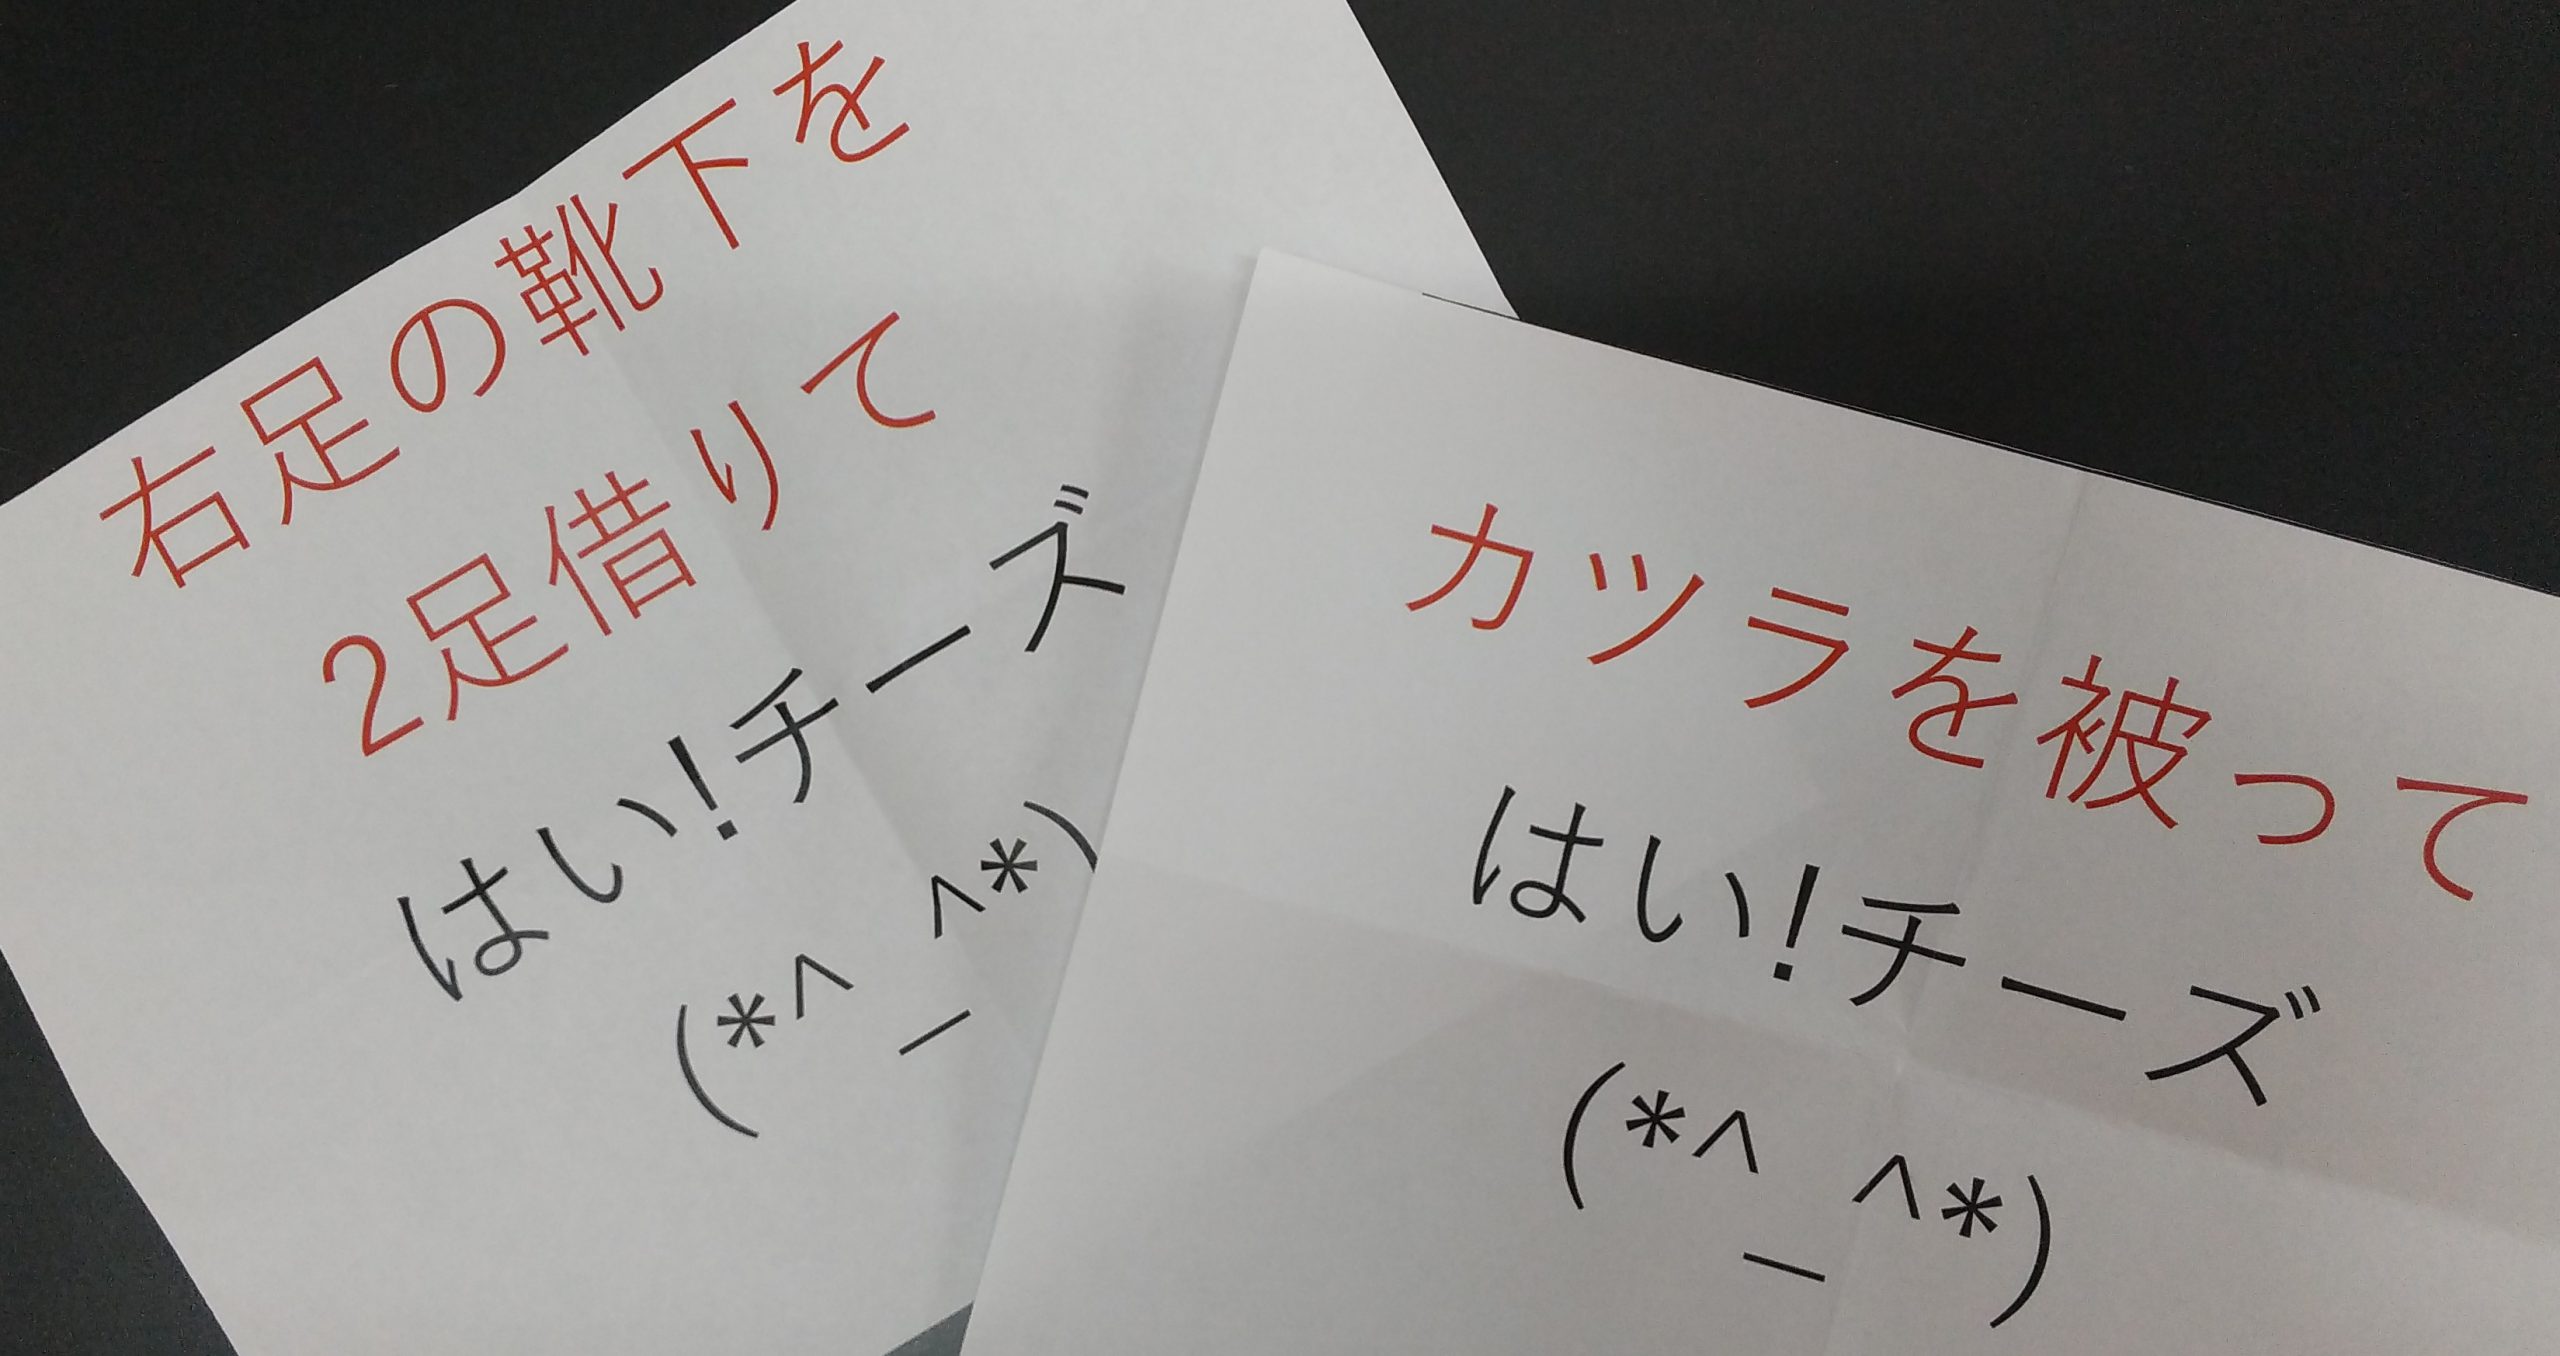 右足の靴下を
2足借りて
はい!チーズ
(*^_^*)
カツラを被って
はい!チーズ
(*^_^*)